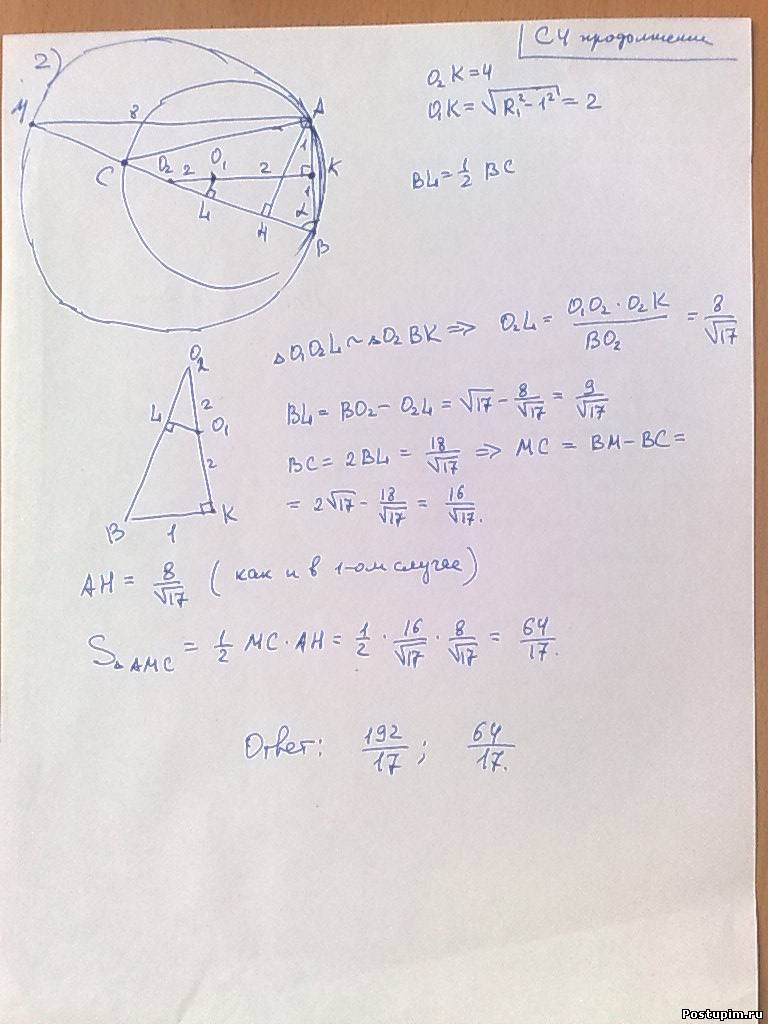 C4 продолжение
2)
M 8 A
C O₂ 2 O₁ 2 K
1
1
L H 2 B
O₂K = 4
O₁K = √(R₁² - 1²) = 2
BL = 1/2 BC
△O₁O₂L ~ △O₂BK ⇒ O₂L = (O₁O₂ · O₂K)/BO₂ = 8/√17
O₂
L 2 O₁
2
B 1 K
BL = BO₂ - O₂L = √17 - 8/√17 = 9/√17
BC = 2BL = 18/√17 ⇒ MC = BM - BC =
= 2√17 - 18/√17 = 16/√17.
AH = 8/√17 (как и в 1-ом случае)
S△AMC = 1/2 MC · AH = 1/2 · 16/√17 · 8/√17 = 64/17.
Ответ: 192/17 ; 64/17.
Postupim.ru